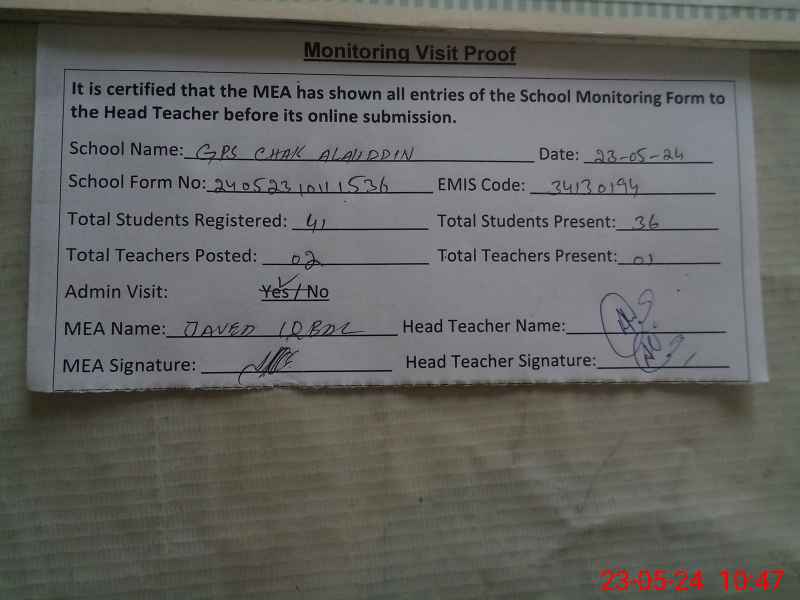 Monitoring Visit Proof
It is certified that the MEA has shown all entries of the School Monitoring Form to
the Head Teacher before its online submission.
School Name: GPS CHAK ALAUDDIN Date: 23-05-24
School Form No: 24052310111536 EMIS Code: 34130194
Total Students Registered: 41 Total Students Present: 36
Total Teachers Posted: 02 Total Teachers Present: 01
Admin Visit: Yes / No
MEA Name: JAVED IQBAL Head Teacher Name:
MEA Signature: Head Teacher Signature:
23-05-24 10:47